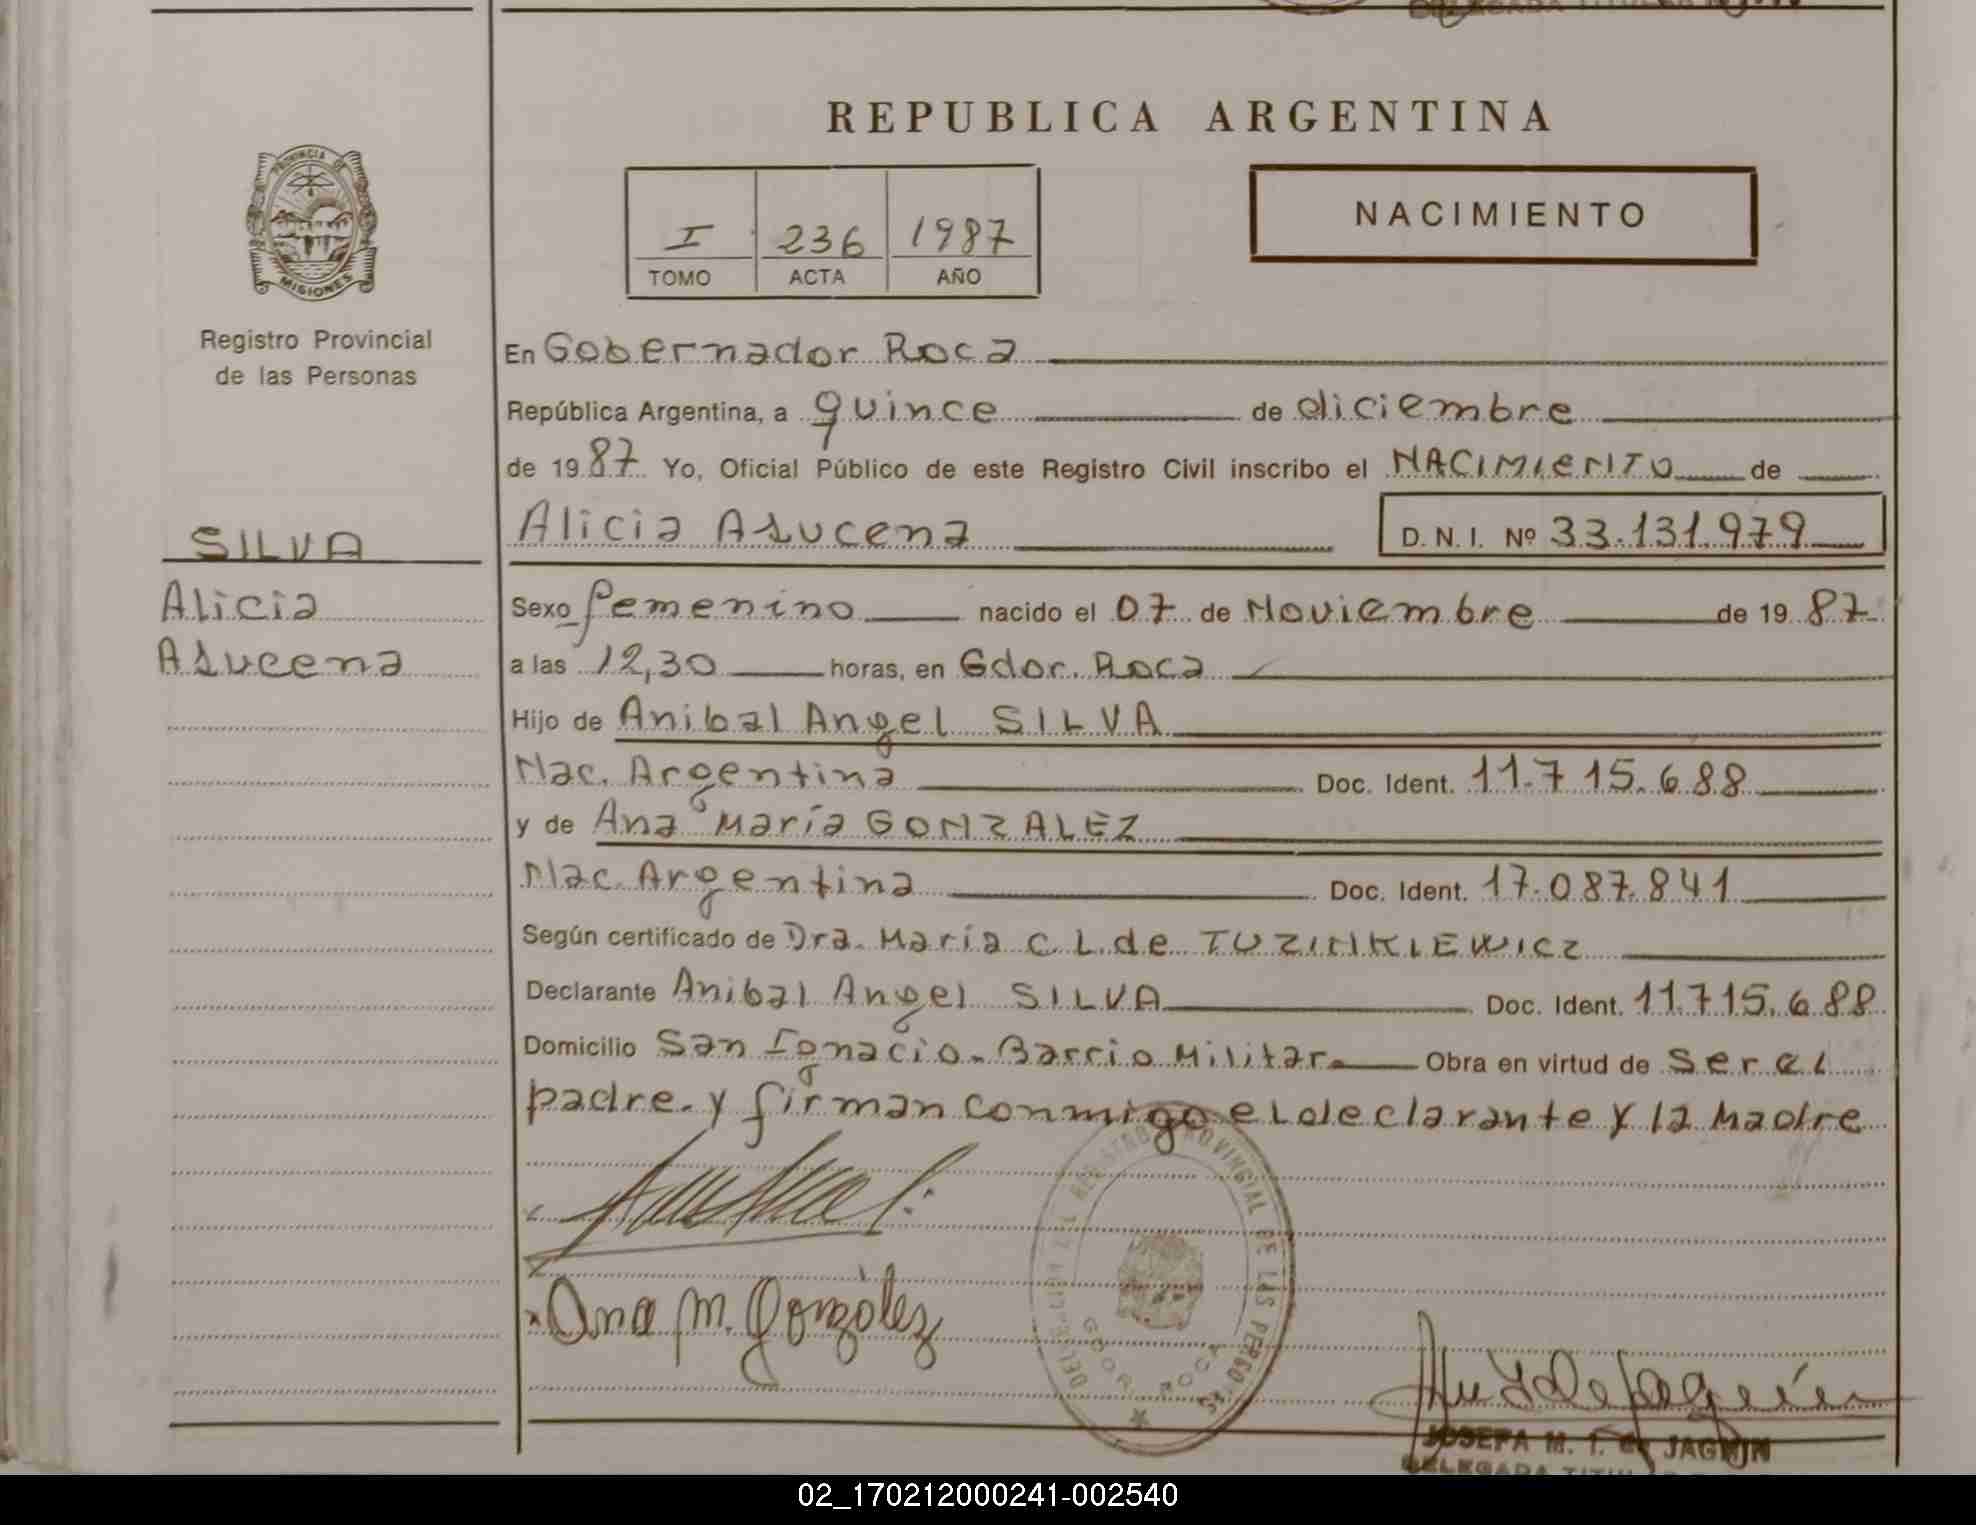 REPUBLICA ARGENTINA
PROVINCIA DE
MISIONES
Registro Provincial
de las Personas
I 236 1987
TOMO ACTA AÑO
NACIMIENTO
En Gobernador Roca
República Argentina, a quince de diciembre
de 1987 Yo, Oficial Público de este Registro Civil inscribo el NACIMIENTO de
SILVA
Alicia Asucena D. N. I. Nº 33.131.979
Alicia
Asucena
Sexo femenino nacido el 07 de Noviembre de 19 87
a las 12,30 horas, en Gdor. Roca
Hijo de Anibal Angel SILVA
Nac. Argentina Doc. Ident. 11.715.688
y de Ana María GONZALEZ
Nac. Argentina Doc. Ident. 17.087.841
Según certificado de Dra. María C L. de TUZINKIEWICZ
Declarante Anibal Angel SILVA Doc. Ident. 11.715.688
Domicilio San Ignacio. Barrio Militar. Obra en virtud de ser el
padre. y firman conmigo el declarante y la Madre
REGISTRO PROVINCIAL DE LAS PERSO
GDOR. ROCA
Ana M. González
JOSEFA M. T. JAGMIN
DELEGADA TITULAR
02_170212000241-002540